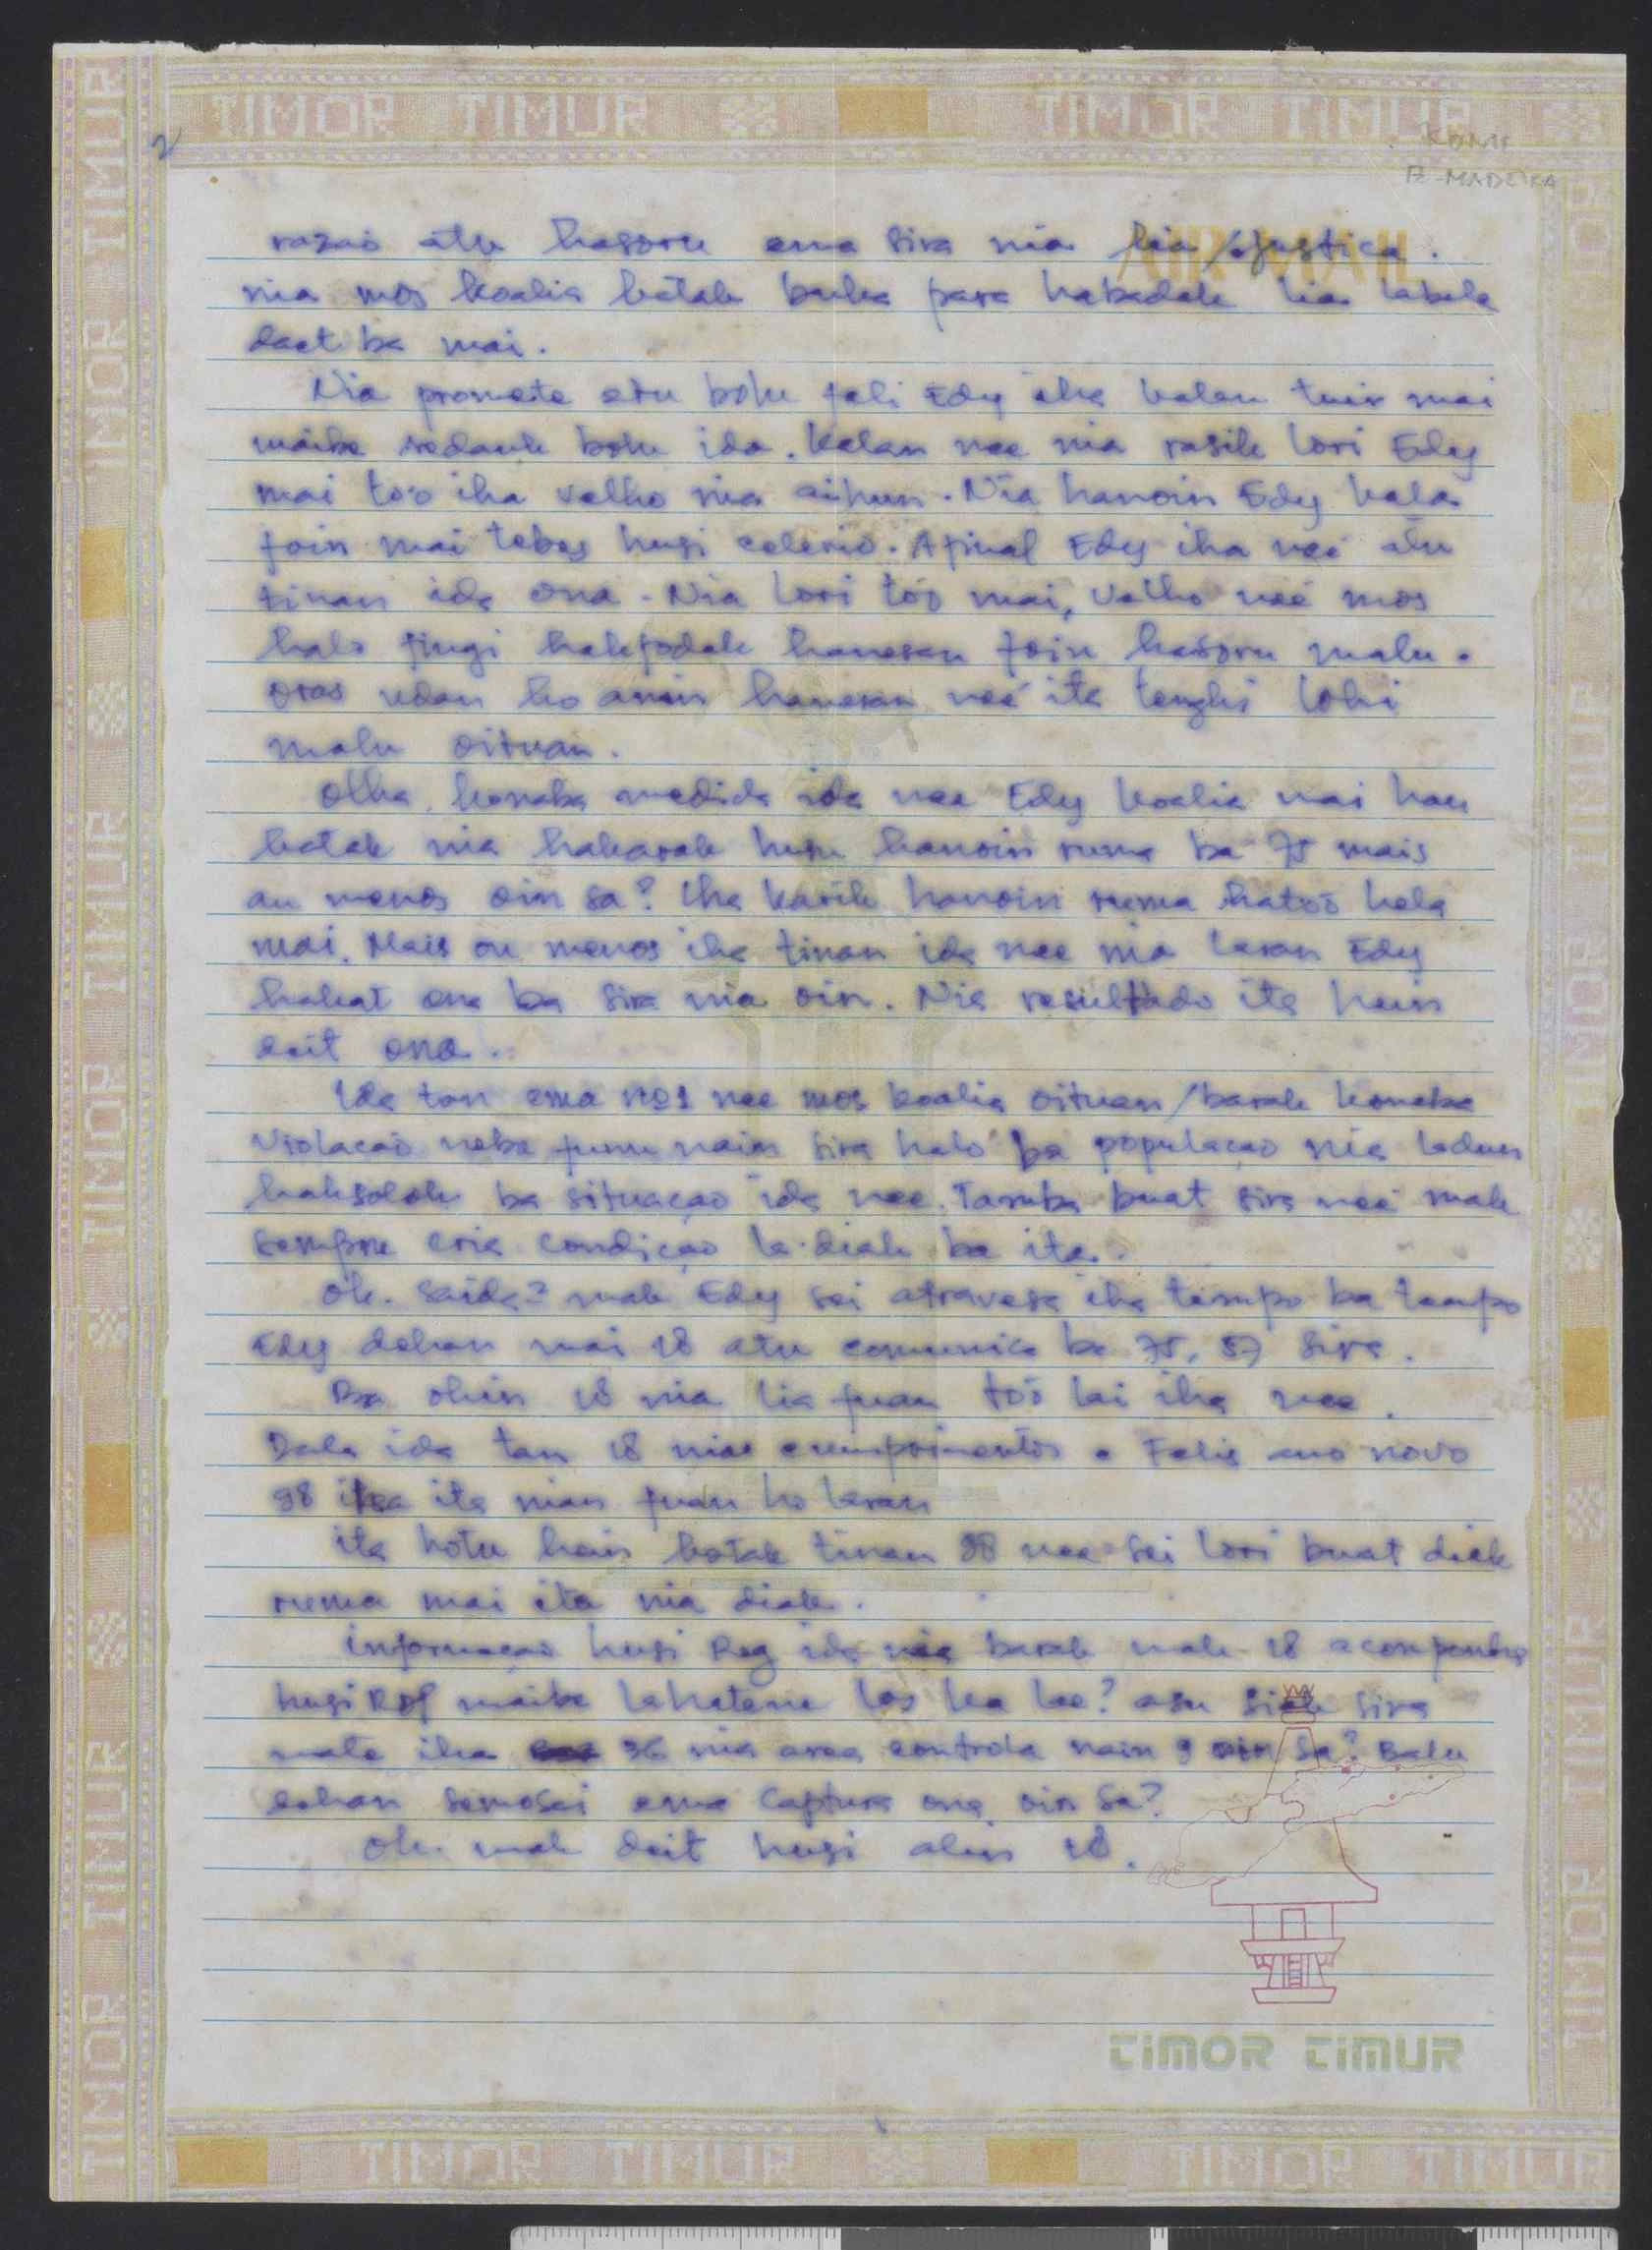 TIMOR TIMUR TIMOR TIMUR
2
KOMF
B-MADEIRA
AIR MAIL
razaõ atu hasoru ema sira nia lia/justica.
nia mos koalia katak buka para habadak lia labele
daet ba mai.
Nia promete atu bolu fali Edy iha kalan tuir mai
maibe sedauk bolu ida. Kalan nee nia rasik lori Edy
mai to'o iha velho nia aihun. Nia hanoin Edy kala
foin mai tebes husi celerio. Afinal Edy iha neé atu
tinan ida ona. Nia lori tóo mai, Velho neé mos
halo fingi hakfodak hanesan foin hasoru malu.
oras udan ho anin hanesan neé ita tenghi lohi
malu oituan.
Olha, konaba medida ida nee Edy koalia mai hau
katak nia hakarak husu hanoin ruma ba 75 mais
au menos oin sa? Iha karik hanoin ruma hatoó hela
mai. Mais ou menos iha tinan ida nee nia laran Edy
hakat ona ba sira nia oin. Nia resultado ita hein
deit ona.
Ida tan ema nº1 nee mos koalia oituan/barak konaba
Violacaõ nebe funu nain sira halo ba populaçao nia ladun
haksolok ba situaçao ida nee. Tamba buat sira neé mak
sempre cria condiçao la diak ba ita.
Ok. Saida? mak Edy sei atravesa iha tempo ba tempo
Edy dehan mai 18 atu comunica ba 75, 57 sira.
Ba ohin 18 nia lia fuan toó lai iha nee.
Dala ida tan 18 nia cumprimentos. Felis ano novo
98 iha ita nian fuan ho laran
ita hotu hein katak tinan 98 nee sei lori buat diak
ruma mai ita nia diak.
informaçao husi Reg ida nia barak mak 18 acompanha
husi RDF maibe lahatene los ka lae? asu siak sira
mate iha 36 nia area controla nain 9 oin sa? Balu
dehan semosei ema captura ona oin sa?
Ok. mak deit husi alin 18.
TIMOR TIMUR
TIMOR TIMUR TIMOR TIMUR